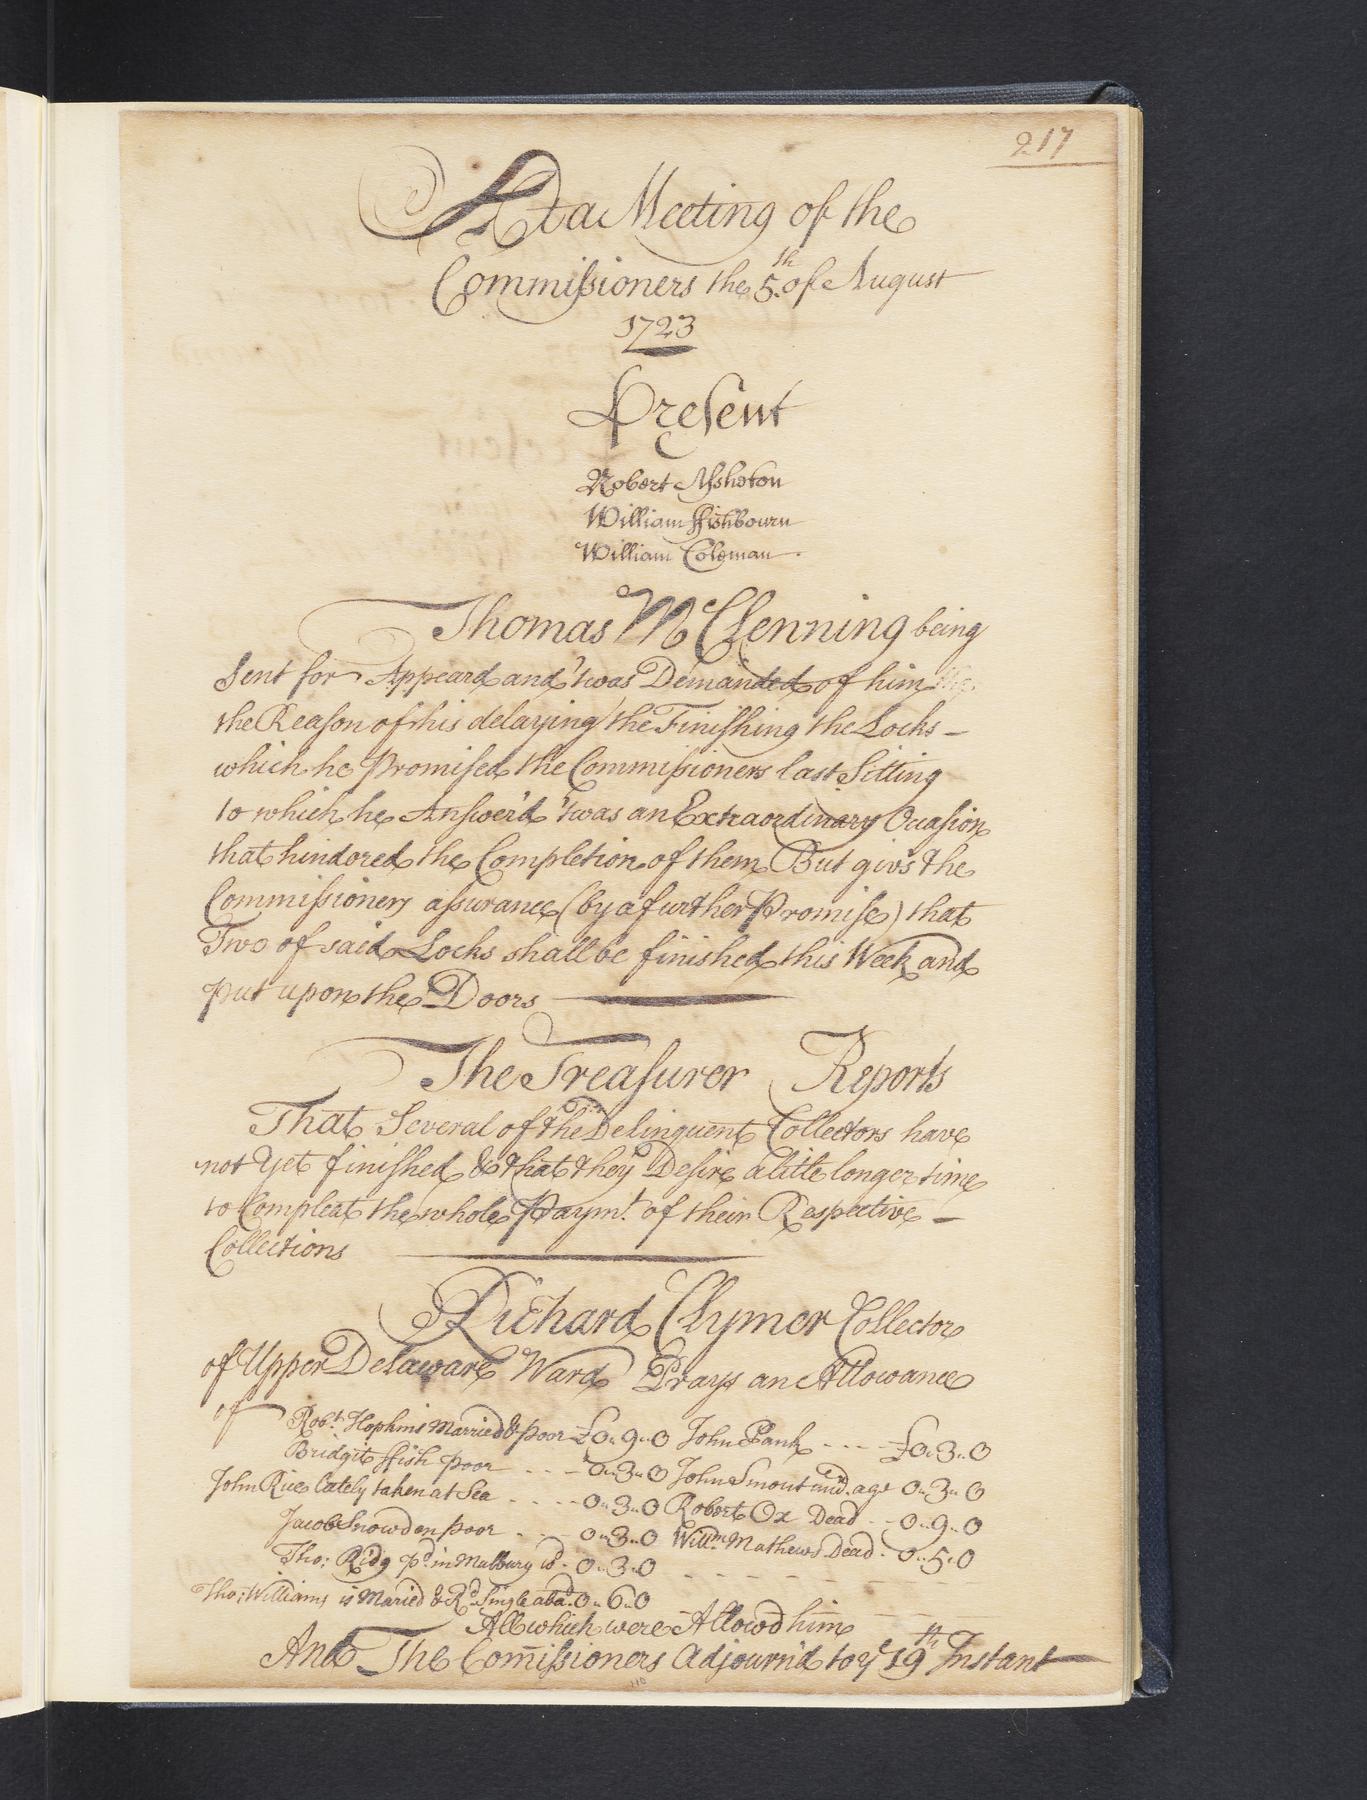 217
At a Meeting of the
Commissioners the 5th of August
1723
Present
Robert Assheton
William ffishbourn
William Coleman
Thomas McClenning being
Sent for Appeard and 'twas Demanded of him
the Reason of his delaying the Finishing the Locks -
which he Promised the Commissioners last Sitting
to which he Answer'd 'twas an Extraordinary Occasion
that hindored the Completion of them But giv's the
Commissioners assurance (by a further Promise) that
Two of said Locks shall be finished this Week and
put upon the Doors
The Treasurer Reports
That Several of the Delinquent Collectors have
not Yet finished & that they Desire a little longer time
to Compleat the whole Paymt. of their Respective -
Collections
Richard Clymer Collector
of Upper Delaware Ward Prays an Allowance
of Robt. Hopkins Married & poor £0..9..0 John Pank ---- £0..3..0
Bridgit ffish poor --- 0..3..0 John Smout und.er age 0..3..0
John Rice Lately taken at Sea ---- 0..3..0 Robert Ox Dead -- 0..9..0
Jacob Snowdon poor --- 0..3..0 Willm. Mathews Dead. 0..5..0
Tho: Ridg pd. in Mulbury wd. 0..3..0
Tho: Williams is Maried & Rd. Single aba.d 0..6..0
All which were Allowd him
And The Comissioners Adjourn'd to ye 19th Instant
110